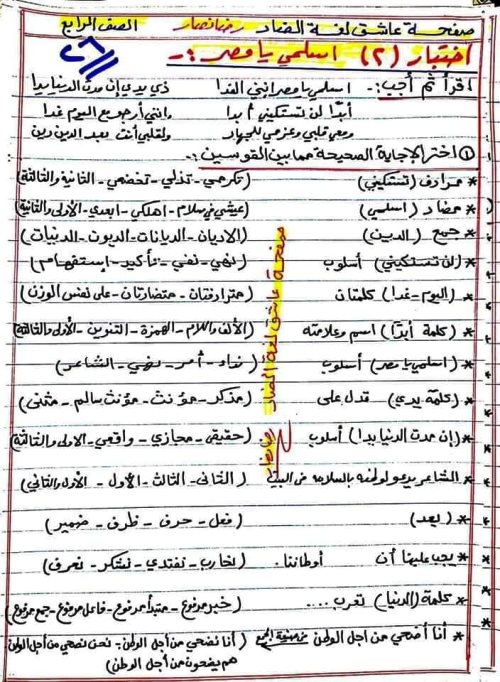 صفحة عاشق لغة الضاد رضا نصار الصف الرابع
اختبار (٢) اسلمي يا مصر :-
اقرأ ثم أجب :- اسلمي يا مصر إنني الفدا ذي يدي إن مدت الدنيا يدا
أبدًا لن تستكيني أبدا وانني أرجو مع اليوم غدا
ومعي قلبي وعزمي للجهاد ولقلبي أنت بعد الدين دين
① اختر الإجابة الصحيحة مما بين القوسين :-
* مرادف (تستكيني) (تكرمي - تذلي - تخضعي - الثانية والثالثة)
* مضاد (اسلمي) (عيشي في سلام - اهلكي - ابعدي - الأولى والثانية)
* جمع (الدين) (الاديان - الديانات - الديون - الدنيات)
* (لن تستكيني) أسلوب (نهي - نفي - تأكيد - إستفهام)
* (اليوم - غدا) كلمتان (مترادفتان - متضادتان - على نفس الوزن)
* (كلمة أبدًا) اسم وعلامته (الألف واللام - الهمزة - التنوين - الأولى والثالثة)
* (اسلمي يا مصر) أسلوب (نداء - أمر - نهي - الشاعر)
* (كلمة يدي) تدل على (مذكر - مؤنث - مؤنث سالم - مثنى)
* (إن مدت الدنيا يدا) أسلوب (حقيقي - مجازي - واقعي - الاولى والثالثة)
* الشاعر يدعو لوطنه بالسلامة من البيت (الثانى - الثالث - الأول - الأول والثاني)
* (بعد) (فعل - حرف - ظرف - ضمير)
* يجب علينا أن أوطاننا. (نحارب - نفتدي - نشكر - نعرف)
* كلمة (الدنيا) تعرب .... (خبر مرفوع - مبتدأ مرفوع - فاعل مرفوع - جمع مرفوع)
* أنا أضحي من أجل الوطن من صيغة الجمع (أنا نضحي من أجل الوطن - نحن نضحي من أجل الوطن
هم يضحون من أجل الوطن)
صفحة عاشق لغة الضاد